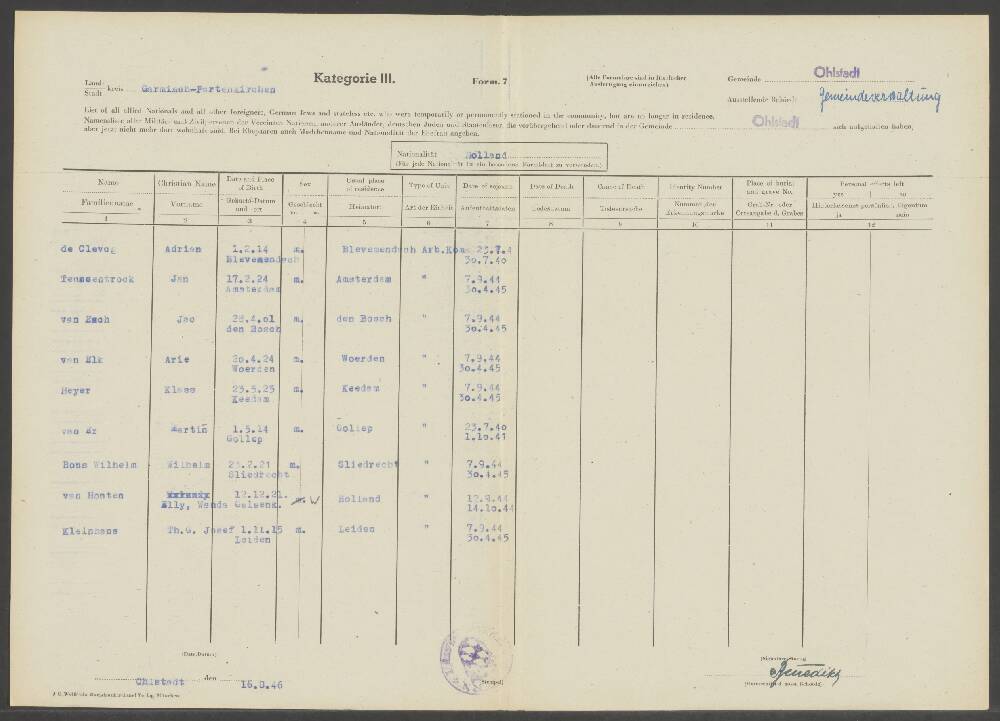 Kategorie III.
Form. 7
(Alle Formulare sind in 5facher Ausfertigung einzureichen)
Gemeinde Ohlstadt
Land- Stadt kreis Garmisch-Partenkirchen
Ausstellende Behörde Gemeindeverwaltung
List of all allied Nationals and all other foreigners, German Jews and stateless etc. who were temporarily or permanently stationed in the community, but are no longer in residence.
Namensliste aller Militär- und Zivilpersonen der Vereinten Nationen, anderer Ausländer, deutschen Juden und Staatenloser, die vorübergehend oder dauernd in der Gemeinde Ohlstadt sich aufgehalten haben,
aber jetzt nicht mehr dort wohnhaft sind. Bei Ehepaaren auch Mädchenname und Nationalität der Ehefrau angeben.
Nationalität Holland
(Für jede Nationalität ist ein besonderes Formblatt zu verwenden)
Name Christian Name Date and Place of Birth Sex Usual place of residence Type of Unit Date of sojourn Date of Death Cause of Death Identity Number Place of burial and grave No. Personal effects left yes no
Familienname Vorname Geburts-Datum und -ort Geschlecht m. w. Heimatort Art der Einheit Aufenthaltsdaten Todesdatum Todesursache Nummer der Erkennungsmarke Grab-Nr. oder Ortsangabe d. Grabes Hinterlassenes persönlich. Eigentum ja nein
1 2 3 4 5 6 7 8 9 10 11 12
de Clevog Adrian 1.2.14 m. Arb.Kom.
30.7.40
Jan 17.2.24 m. Amsterdam " 7.9.44
Amsterdam 30.4.45
van Esch Jac 28.4.01 m. den Bosch " 7.9.44
den Bosch 30.4.45
van Elk Arie 20.4.24 m. Woerden " 7.9.44
Woerden 30.4.45
Meyer Klaas 23.5.25 m. Keedam " 7.9.44
Keedam 30.4.45
van Martin 1.5.14 m. Gollep " 23.7.40
Gollep 1.10.41
Bons Wilhelm Wilhelm 23.2.21 m. Sliedrecht " 7.9.44
Sliedrecht 30.4.45
van Honten 12.12.21. m. W Holland " 12.9.44
Elly, Wenda Gelsenk. 14.10.44
Kleinhans Th.G. Josef 1.11.15 m. Leiden " 7.9.44
Leiden 30.4.45
(Date/Datum)
Ohlstadt den 16.8.46
(Stempel)
Benedikt